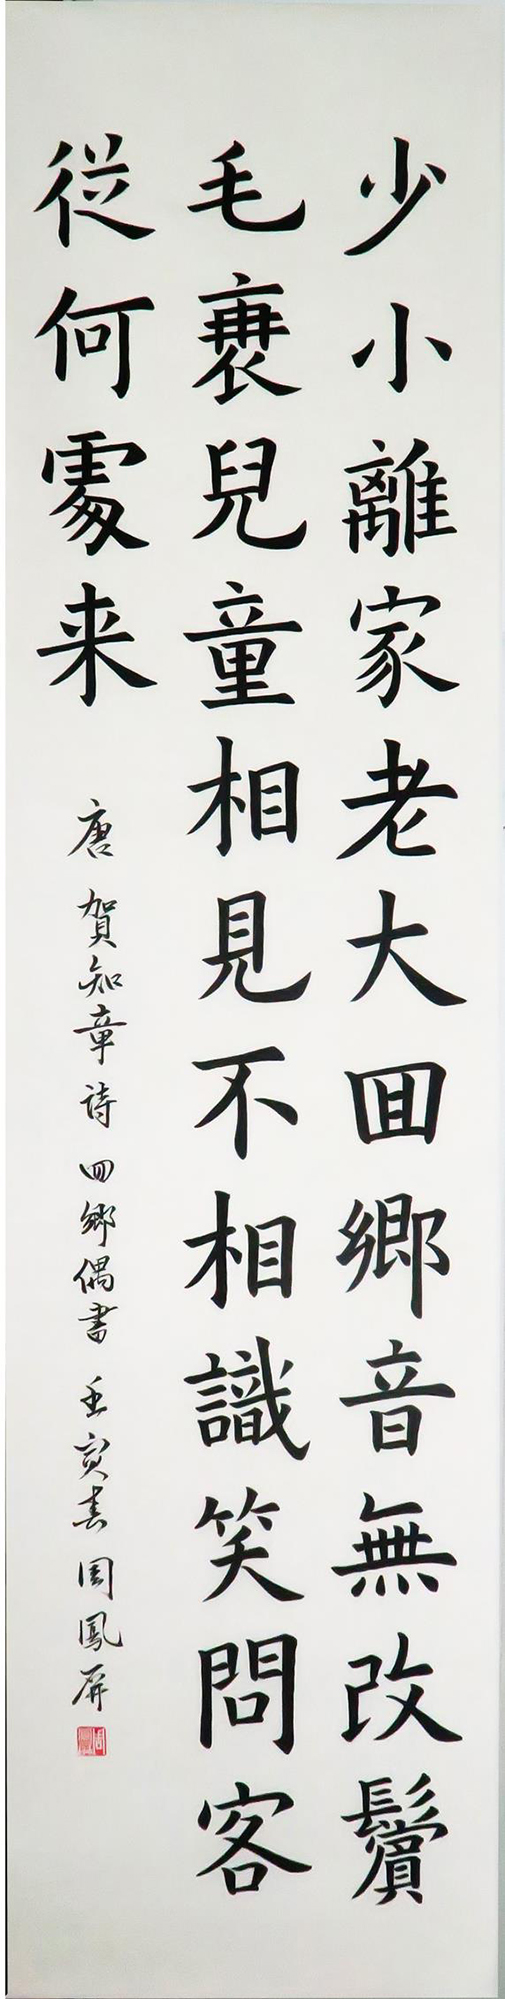 少小離家老大囬鄉音無改鬢
毛衰兒童相見不相識笑問客
從何處来
唐 賀知章詩 回鄉偶書 壬寅春 周鳳屏